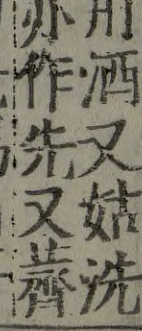 用洒又姑洗
亦作先又薺